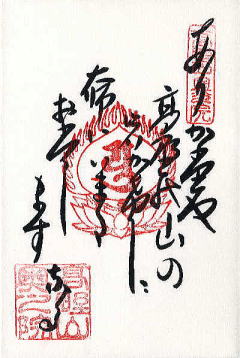 ありがたや
高野の山の
岩かげに
大師はいまだ
おわし
ます
なる
高野山
奥之院